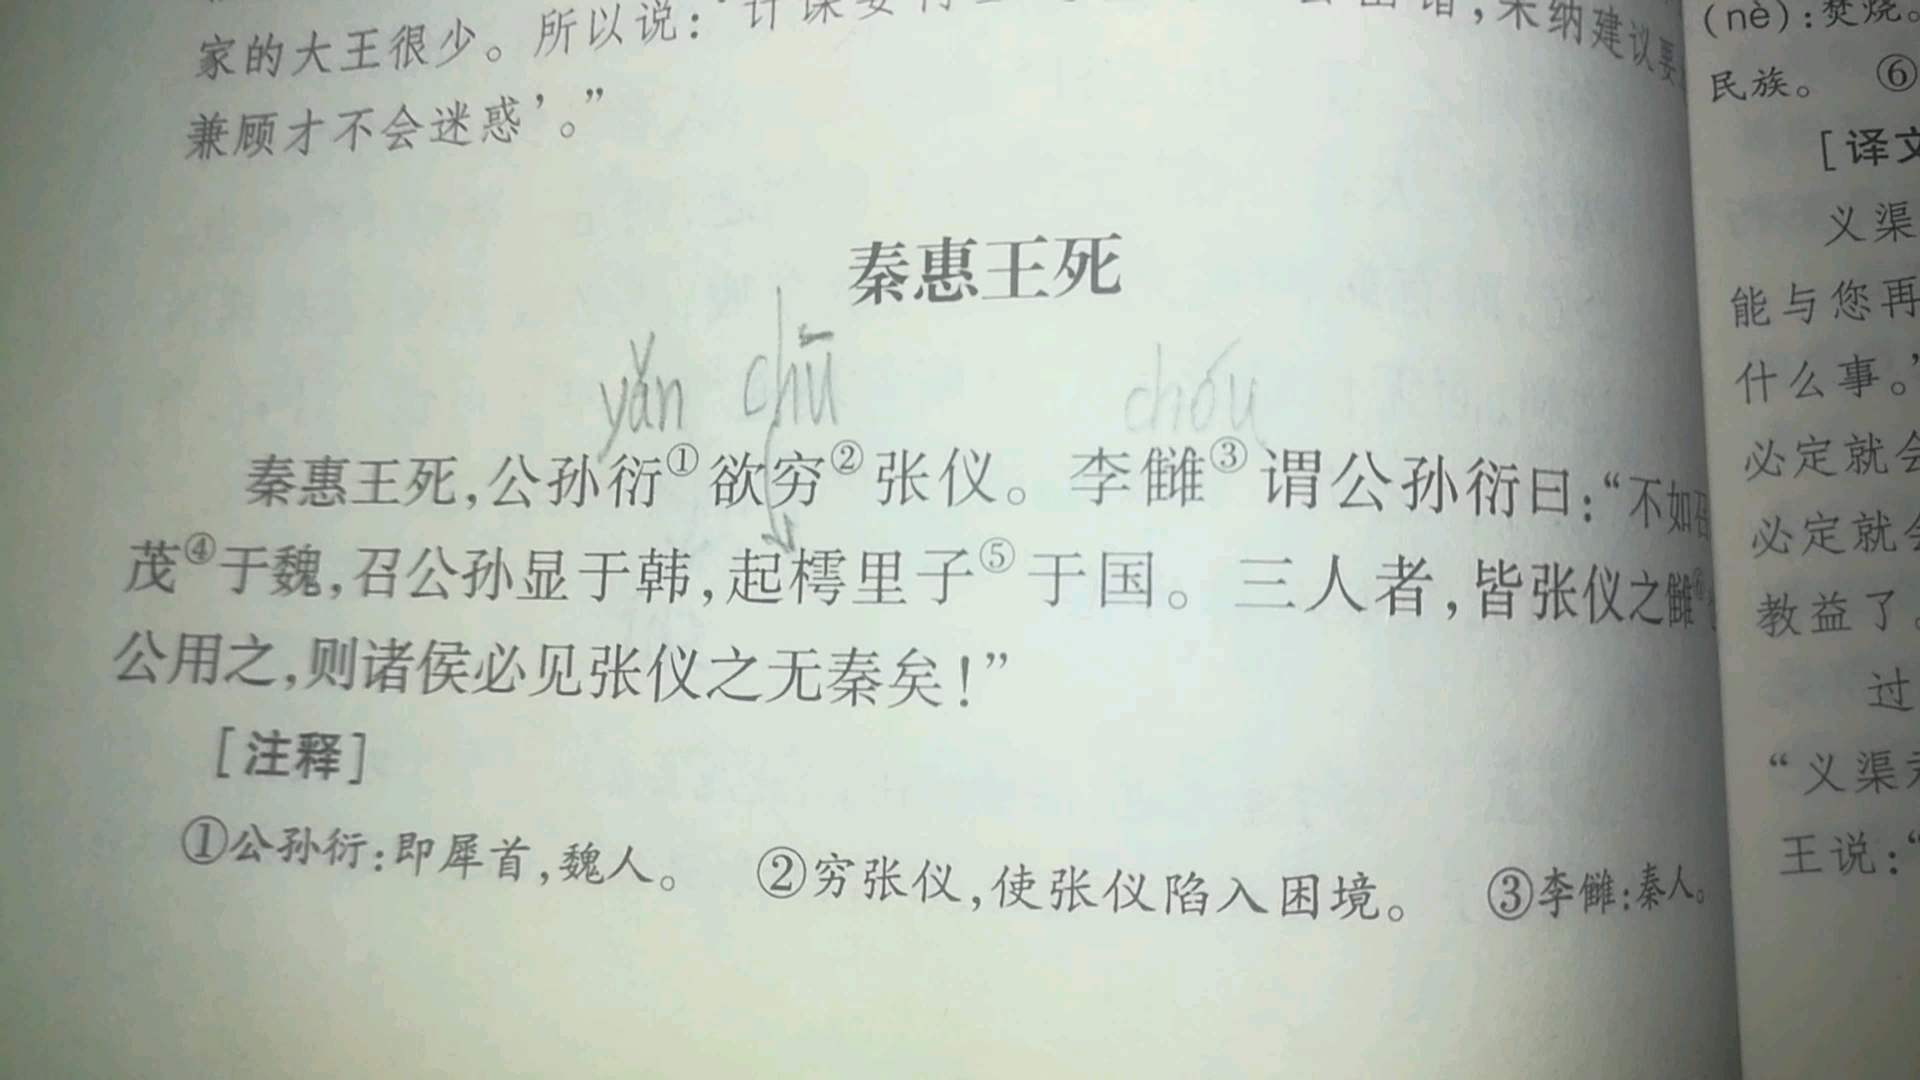 家的大王很少。所以说：
未纳建议要
兼顾才不会迷惑’。”
秦惠王死
yǎn chū chóu
秦惠王死，公孙衍①欲穷②张仪。李雠③谓公孙衍曰：“不如召
茂④于魏，召公孙显于韩，起樗里子⑤于国。三人者，皆张仪之雠⑥
公用之，则诸侯必见张仪之无秦矣！”
［注释］
①公孙衍：即犀首，魏人。 ②穷张仪，使张仪陷入困境。 ③李雠：秦人。
(nè)：焚烧。
民族。 ⑥
［译文
义渠
能与您再
什么事。’
必定就会
必定就会
教益了。
过
“义渠
王说：“